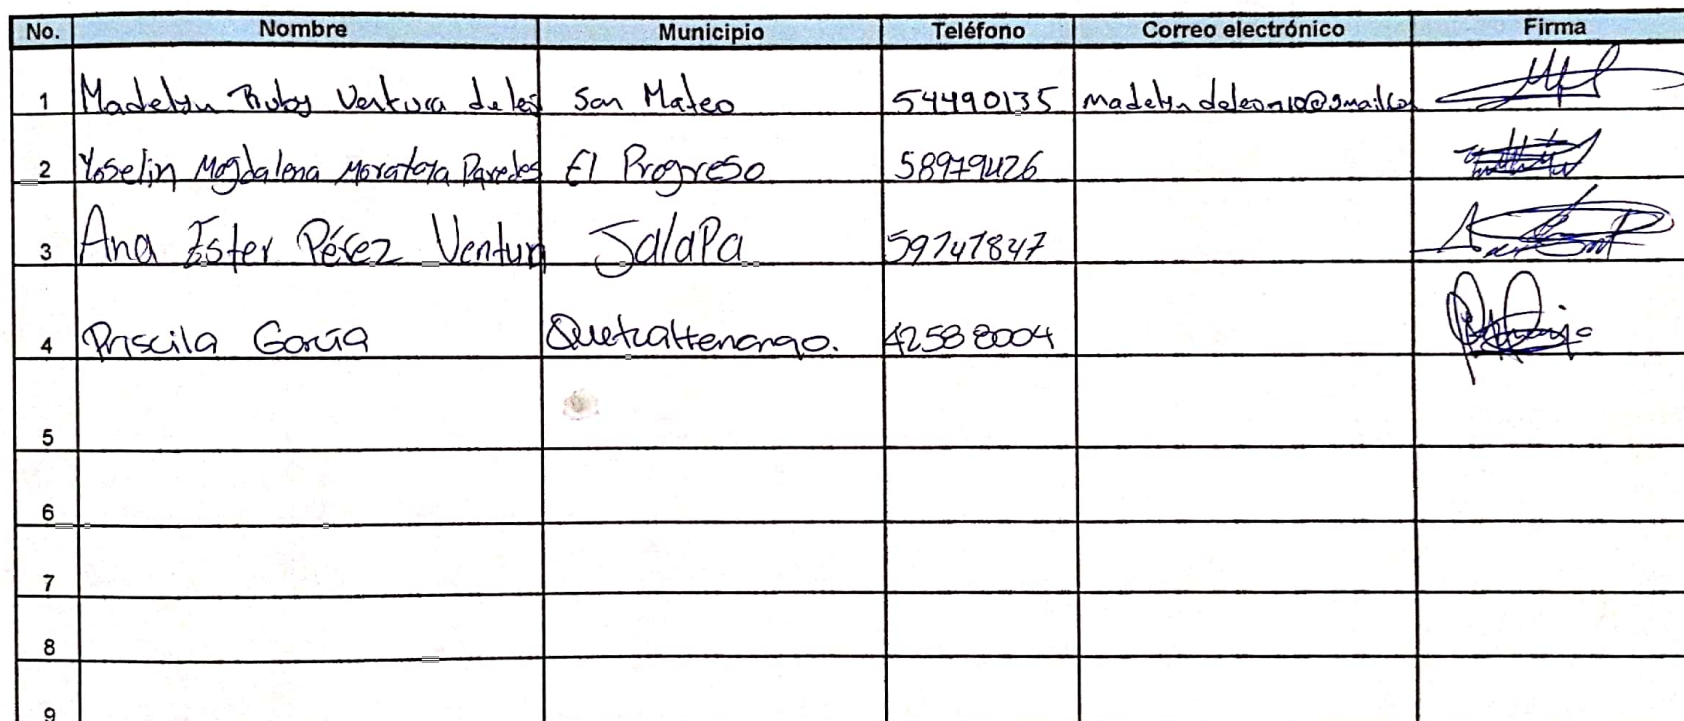 No. Nombre Municipio Teléfono Correo electrónico Firma
1 Madelyn Ruby Ventura de leó San Mateo 54490135 madelyn deleon10@gmail.co
2 Yoselin Magdalena Morataya Paredes El Progreso 58979426
3 Ana Ester Pérez Ventur Jalapa 59747847
4 Priscila García Quetzaltenango. 42588004
5
6
7
8
9